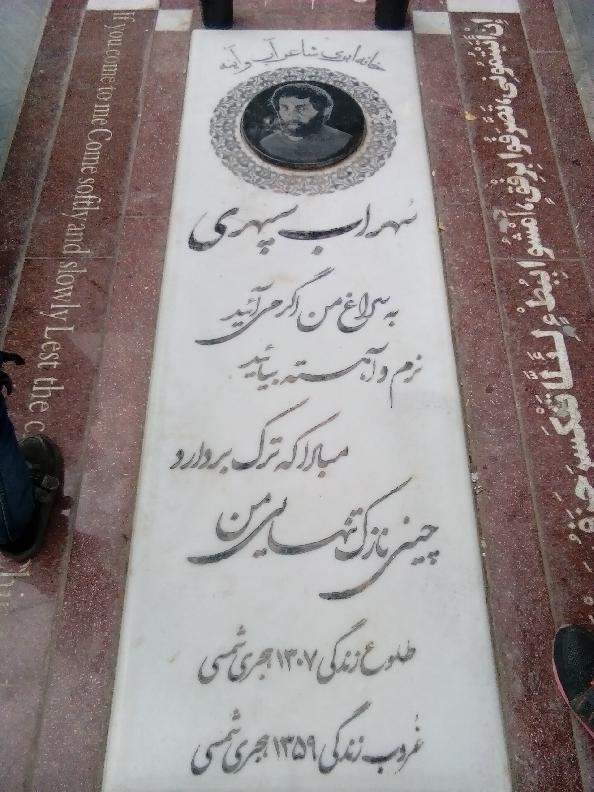 خانه ابدی شاعر آب و آینه
سهراب سپهری
به سراغ من اگر می آئید
نرم و آهسته بیائید
مبادا که ترک بردارد
چینی نازک تنهایی من
طلوع زندگی ۱۳۰۷ هجری شمسی
غروب زندگی ۱۳۵۹ هجری شمسی
If you come to me Come softly and slowly Lest the c
إن أتیتمونی، تصرفوا برفق، امشوا ببطء لئلا تنکسر